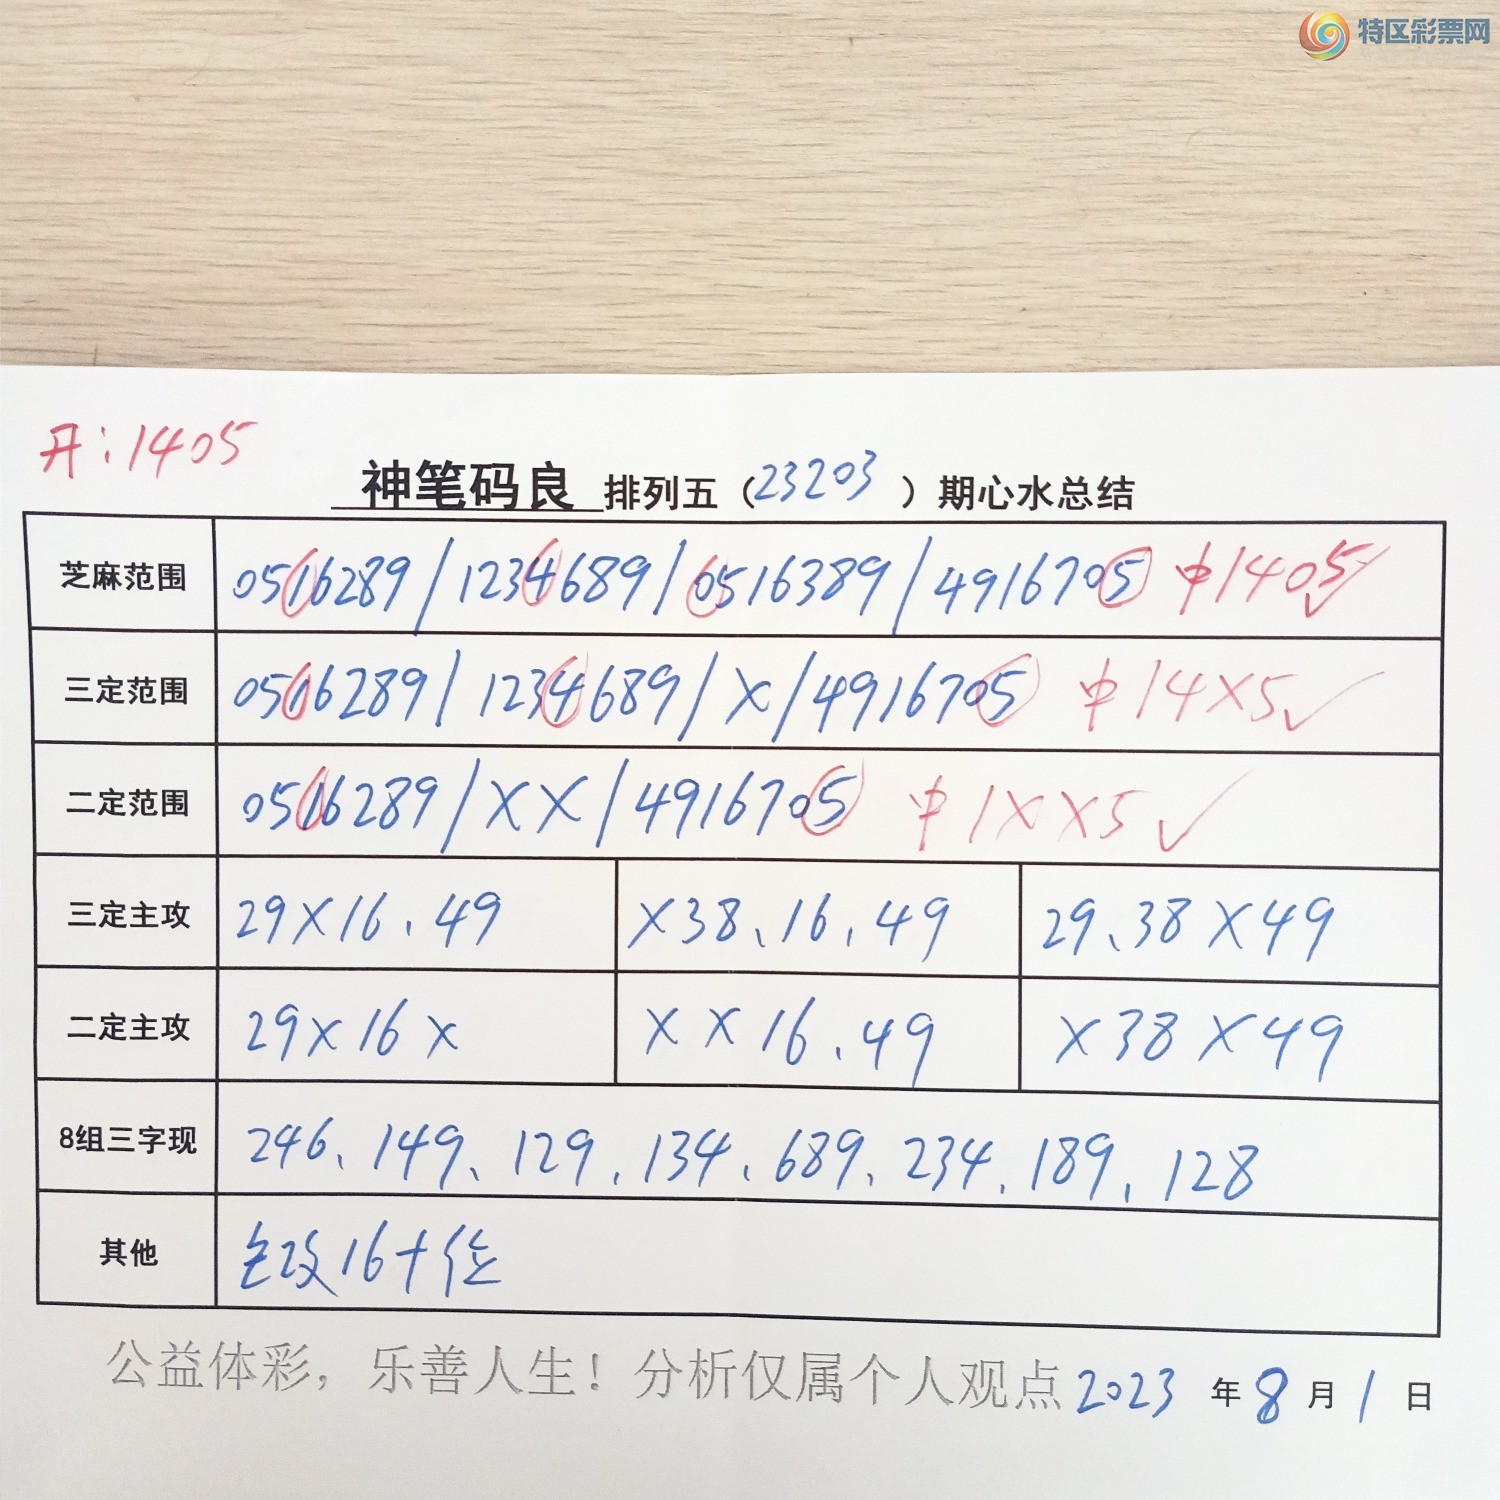 特区彩票网
开:1405
神笔码良 排列五(23203)期心水总结
芝麻范围 0516289/1234689/0516389/4916705 中1405✓
三定范围 0516289/1234689/X/4916705 中14X5✓
二定范围 0516289/XX/4916705 中1XX5✓
三定主攻 29X16、49 X38、16、49 29、38X49
二定主攻 29X16X XX16、49 X38X49
8组三字现 246、149、129、134、689、234、189、128
其他 主攻16十位
公益体彩,乐善人生!分析仅属个人观点 2023年8月1日